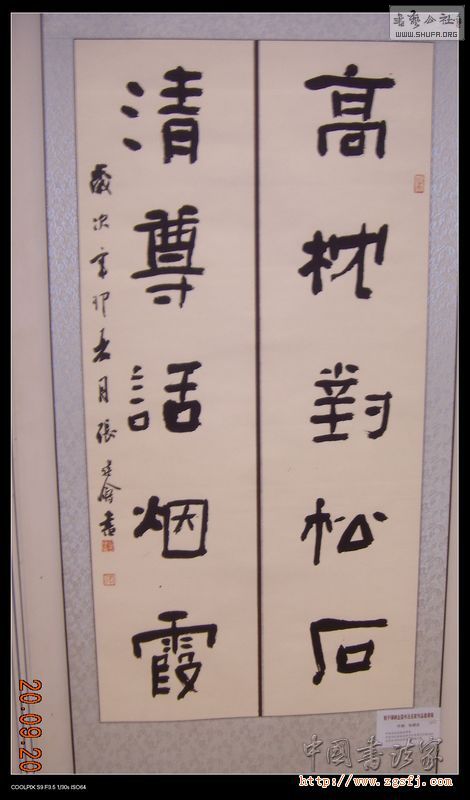 高枕對松石
清尊話烟霞
歲次辛卯 月張
書
中國書法家
http://www.zgsfj.com
WWW.SHUFA.ORG
20.09.20
COOLPIX S9 F3.5 1/30s ISO64